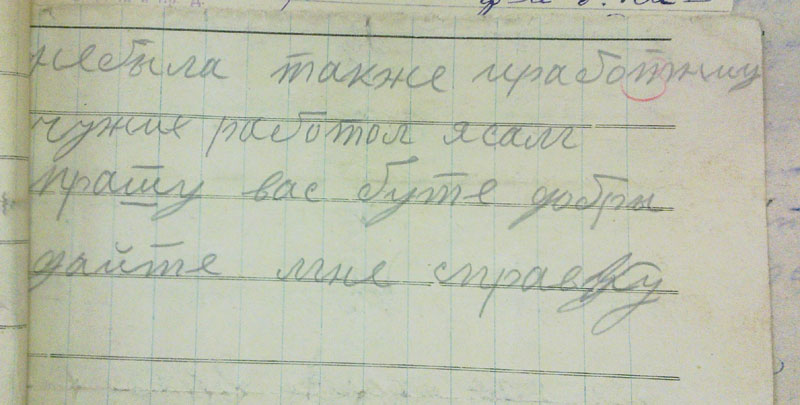 небыла также иработницу
чужих работол ясалг
прашу вас буте добры
дайте мне справку